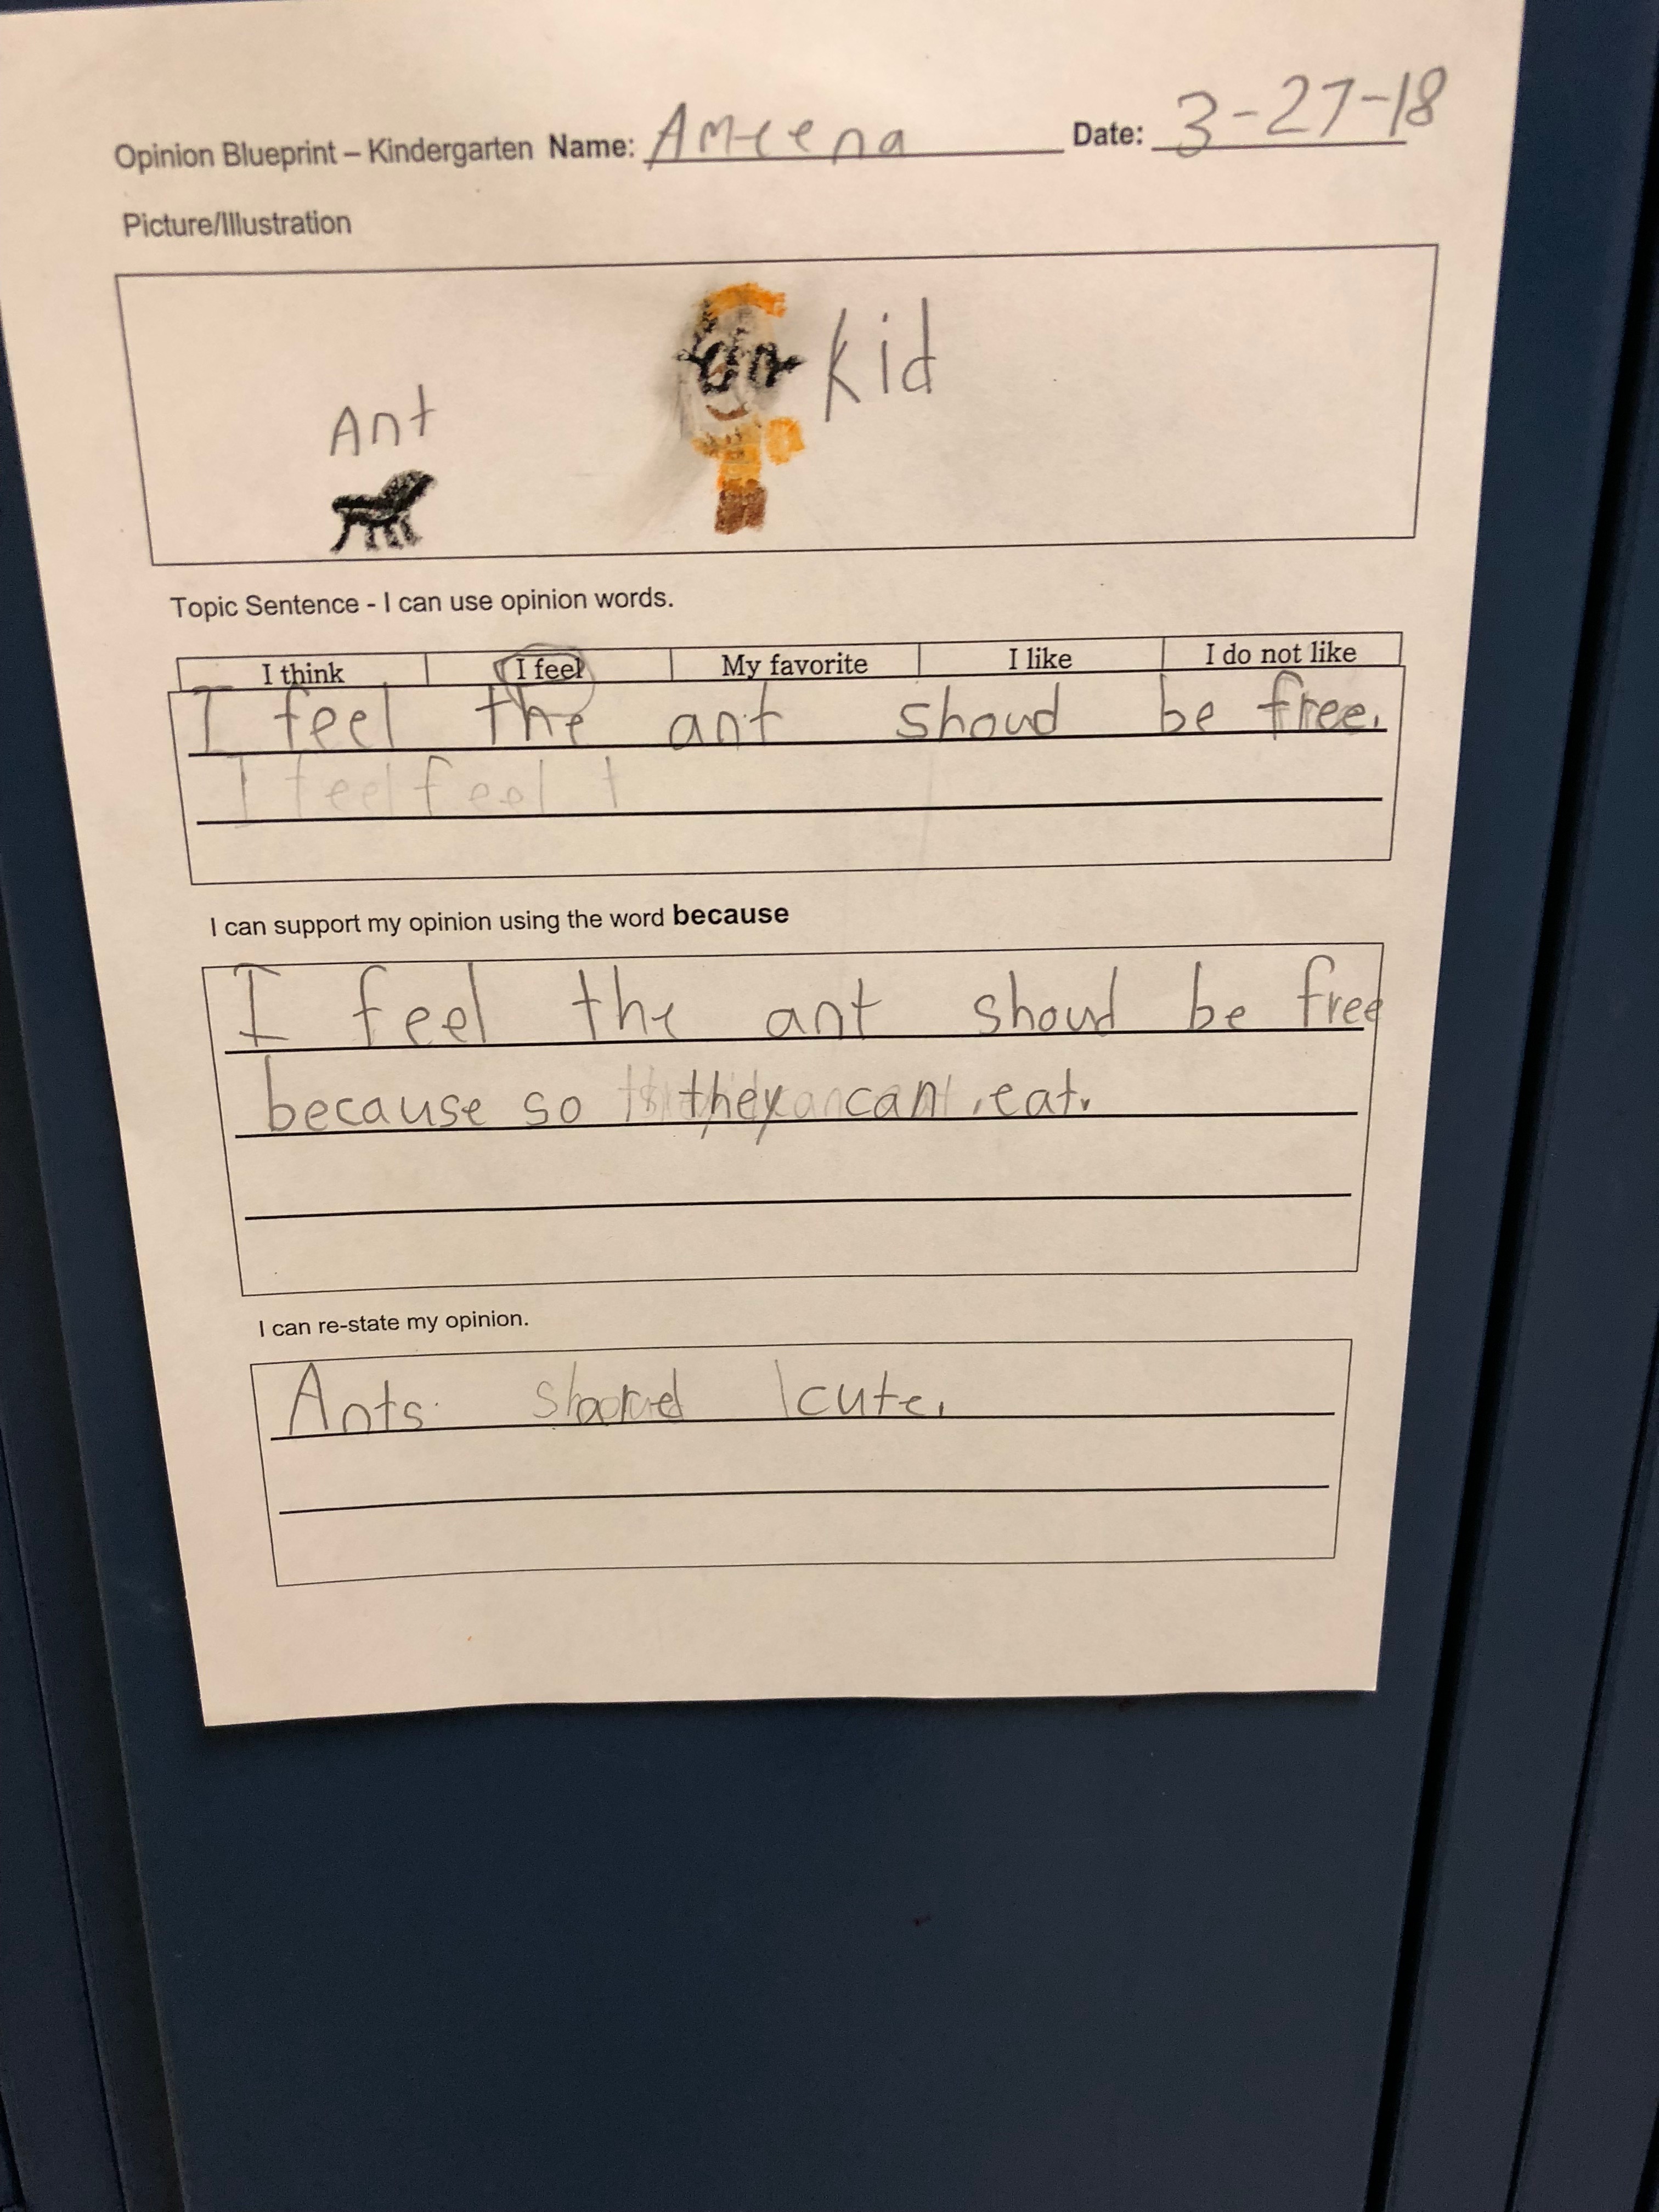 Opinion Blueprint – Kindergarten Name: Ameena Date: 3-27-18
Picture/Illustration
Kid
Ant
Topic Sentence - I can use opinion words.
I think I feel My favorite I like I do not like
I feel the ant shoud be free.
I feel feel t
I can support my opinion using the word because
I feel the ant shoud be free
because so they can eat.
I can re-state my opinion.
Ants cute.